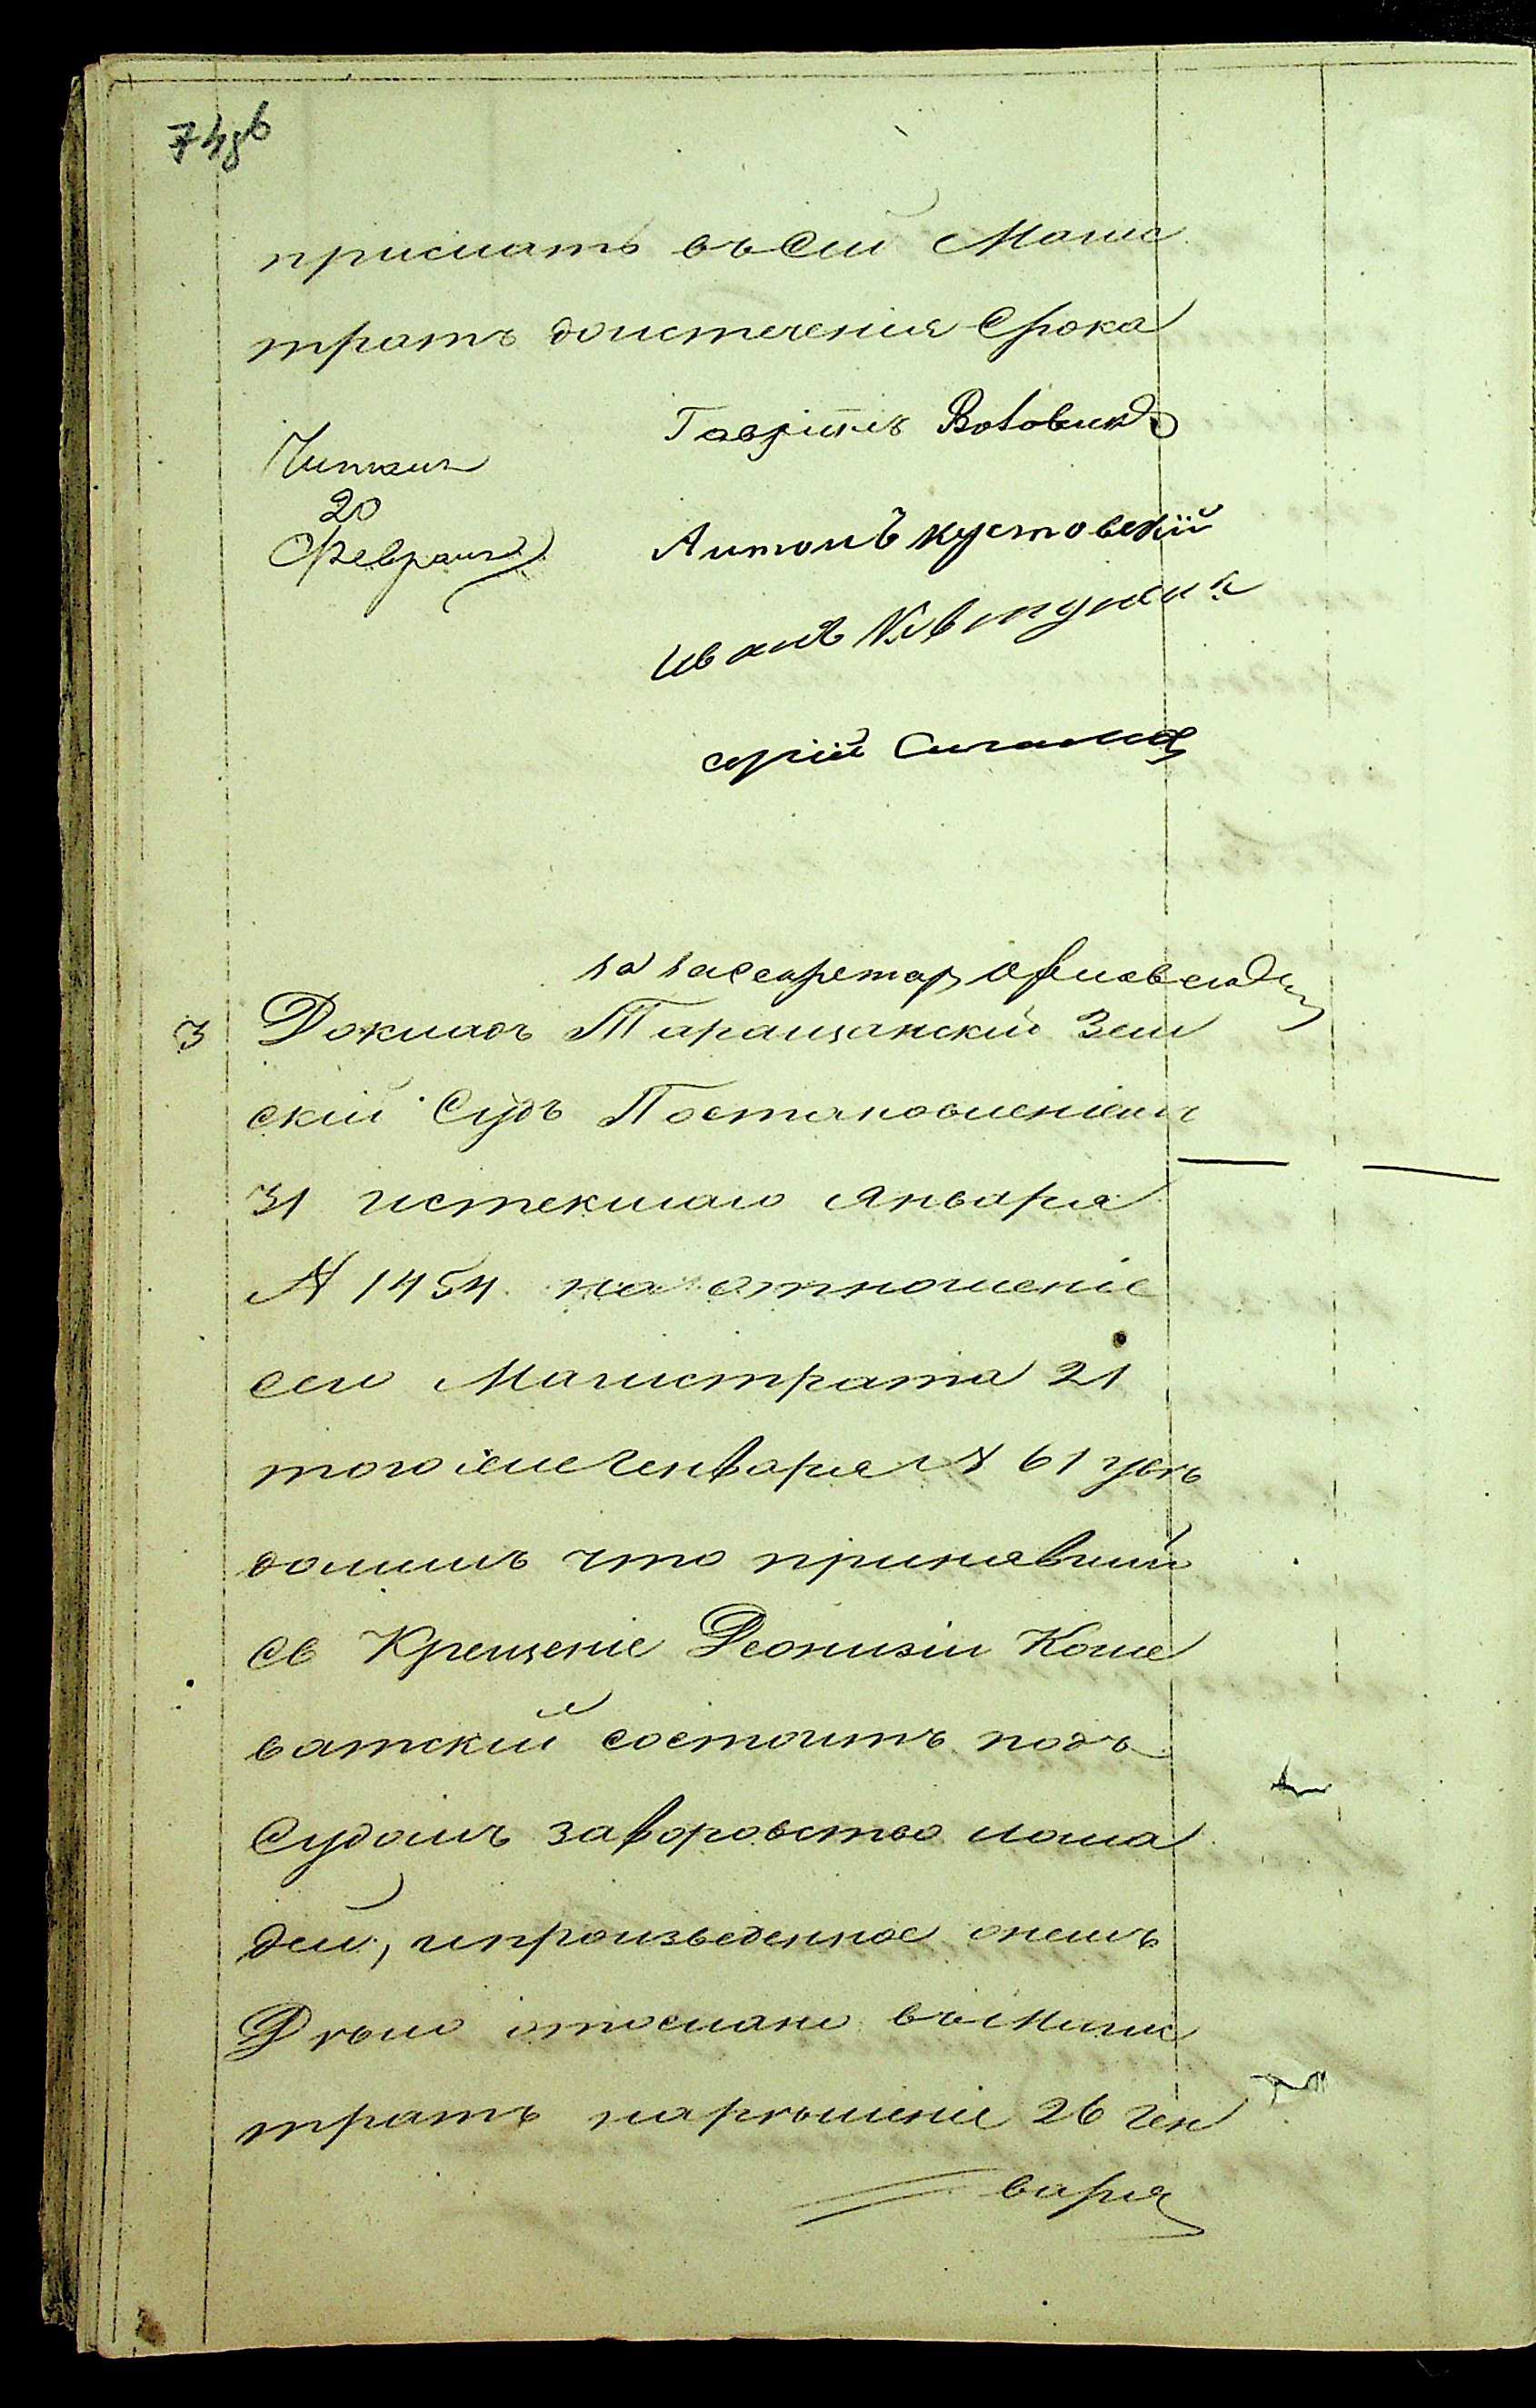 748
прислать въ сей Магис
тратъ доистеченія Срока
Гавріилъ Вововикъ
Читали
20
Февраля
Антонъ кустовскій
Иванъ
сергій
за засекретар
3 Докладъ Таращанскій Зем
скій Судъ Постановленіемъ
31 истекшаго Января
№ 1454 на отношеніе
сего Магистрата 21
того же Генваря № 61 увѣ
домилъ что принявшій
Св Крещеніе Деонизій Коше
ватскій состоитъ подъ
Судомъ заворовство лоша
дей, ипроизведенное онемъ
Дѣло отослано въ Магис
тратъ нарѣшеніе 26 Ген
варя